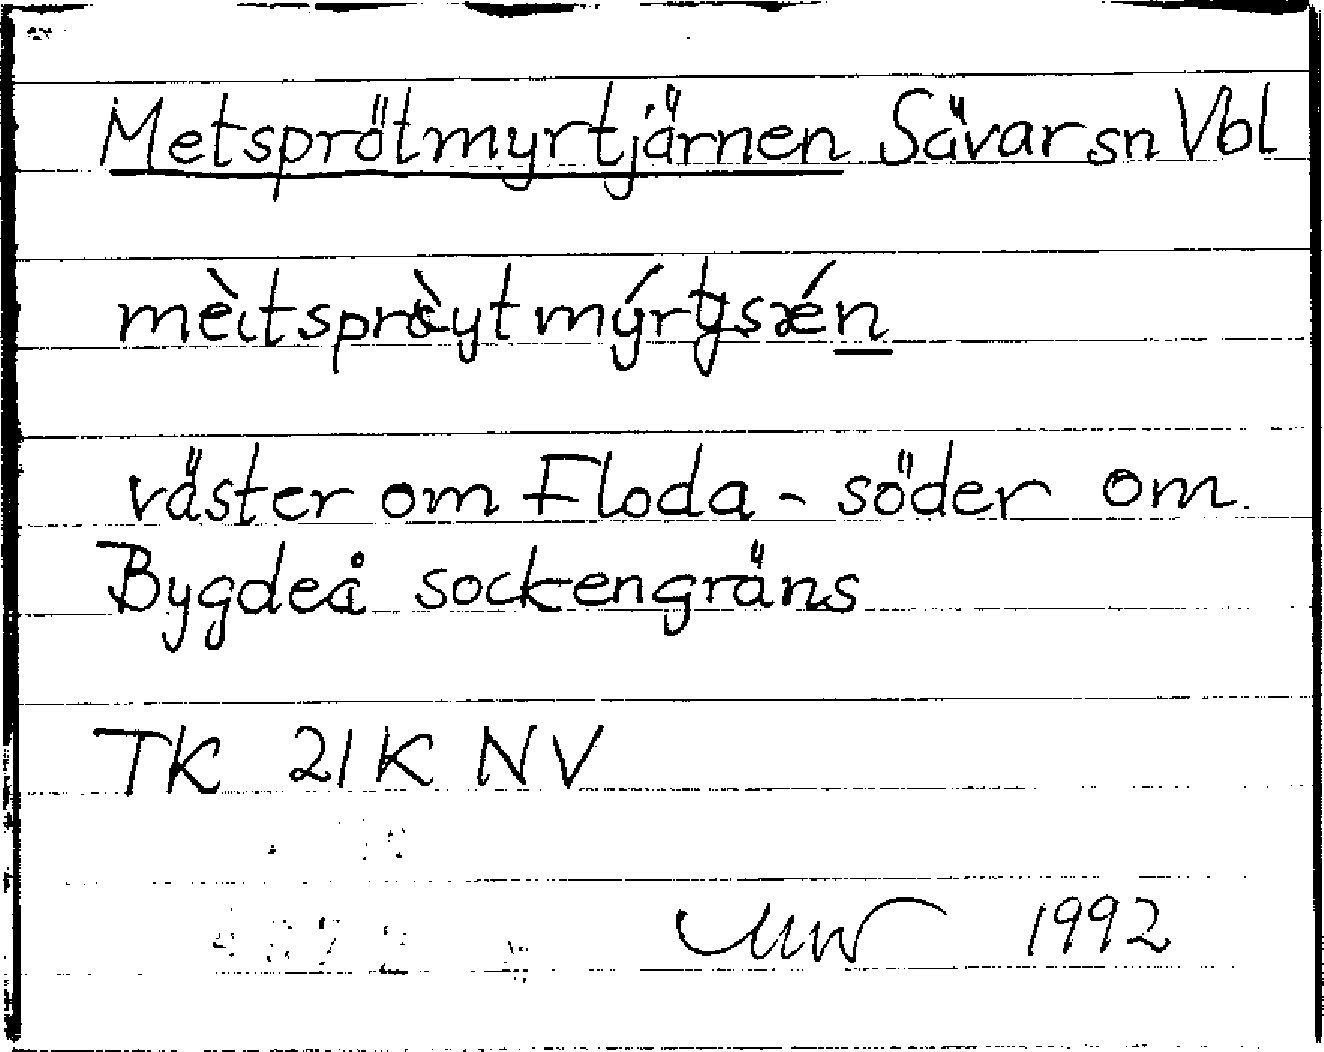 Metsprötmyrtjärnen Sävar sn Vbl
väster om Floda - söder om
Bygdeå sockengräns
TK 21K NV
1992